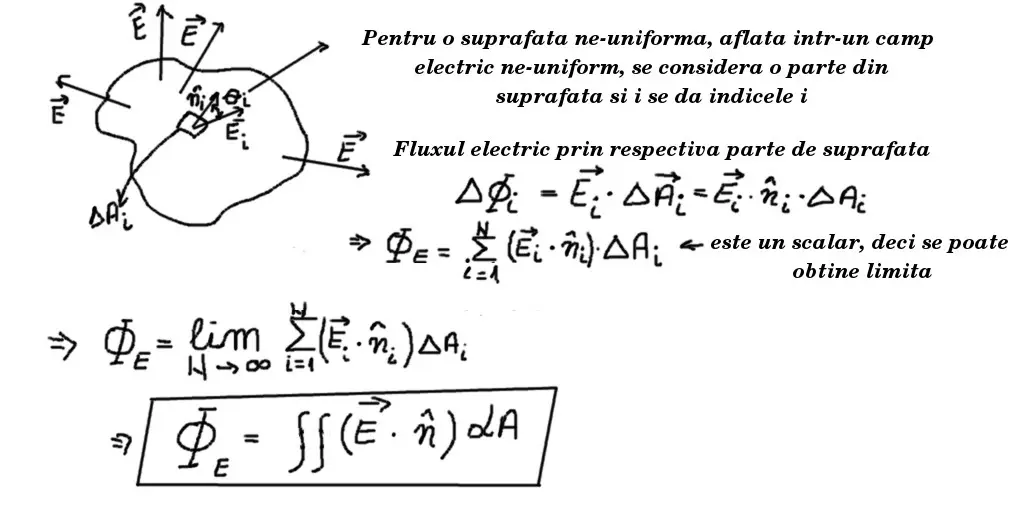 E⃗ E⃗
Pentru o suprafata ne-uniforma, aflata intr-un camp
electric ne-uniform, se considera o parte din
suprafata si i se da indicele i
E⃗ n̂ᵢ θᵢ E⃗ᵢ
E⃗
ΔAᵢ
Fluxul electric prin respectiva parte de suprafata
ΔΦᵢ = E⃗ᵢ · ΔA⃗ᵢ = E⃗ᵢ · n̂ᵢ · ΔAᵢ
⇒ Φ_E = ∑_{i=1}^{N} (E⃗ᵢ · n̂ᵢ) · ΔAᵢ ← este un scalar, deci se poate
obtine limita
⇒ Φ_E = lim_{N→∞} ∑_{i=1}^{N} (E⃗ᵢ · n̂ᵢ) ΔAᵢ
⇒ Φ_E = ∬ (E⃗ · n̂) dA